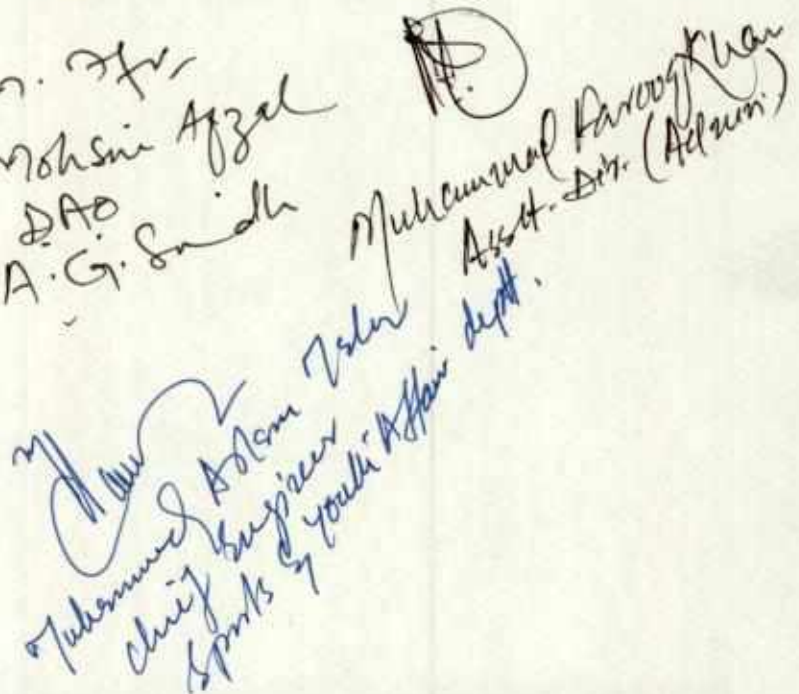 Mohsin Afzal
DAO
A.G. Sindh
Muhammad Farooq Khan
Asstt. Dir. (Admin)
Muhammad Aslam
Chief Engineer
Sports & Youth Affair deptt.